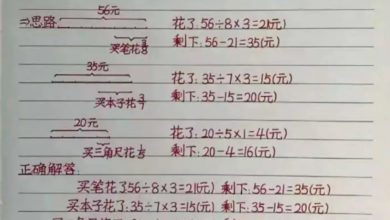 56元
⇒思路 花了:56÷8×3=21(元)
买笔花3/8 剩下:56-21=35(元)
35元
花了:35÷7×3=15(元)
买本子花3/7 剩下:35-15=20(元)
20元
花了:20÷5×1=4(元)
买三角尺花1/5 剩下:20-4=16(元)
正确解答:
买笔花了56÷8×3=21(元) 剩下:56-21=35(元)
买本子花了:35÷7×3=15(元) 剩下:35-15=20(元)